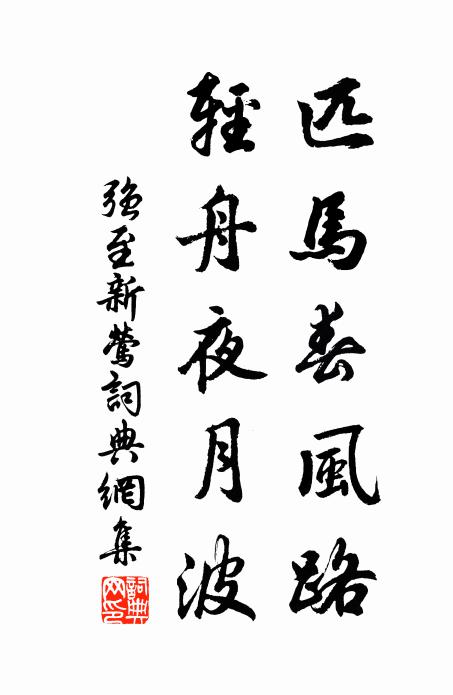 匹馬春風路
輕舟夜月波
強至新鶯詞典網集
詞典網印